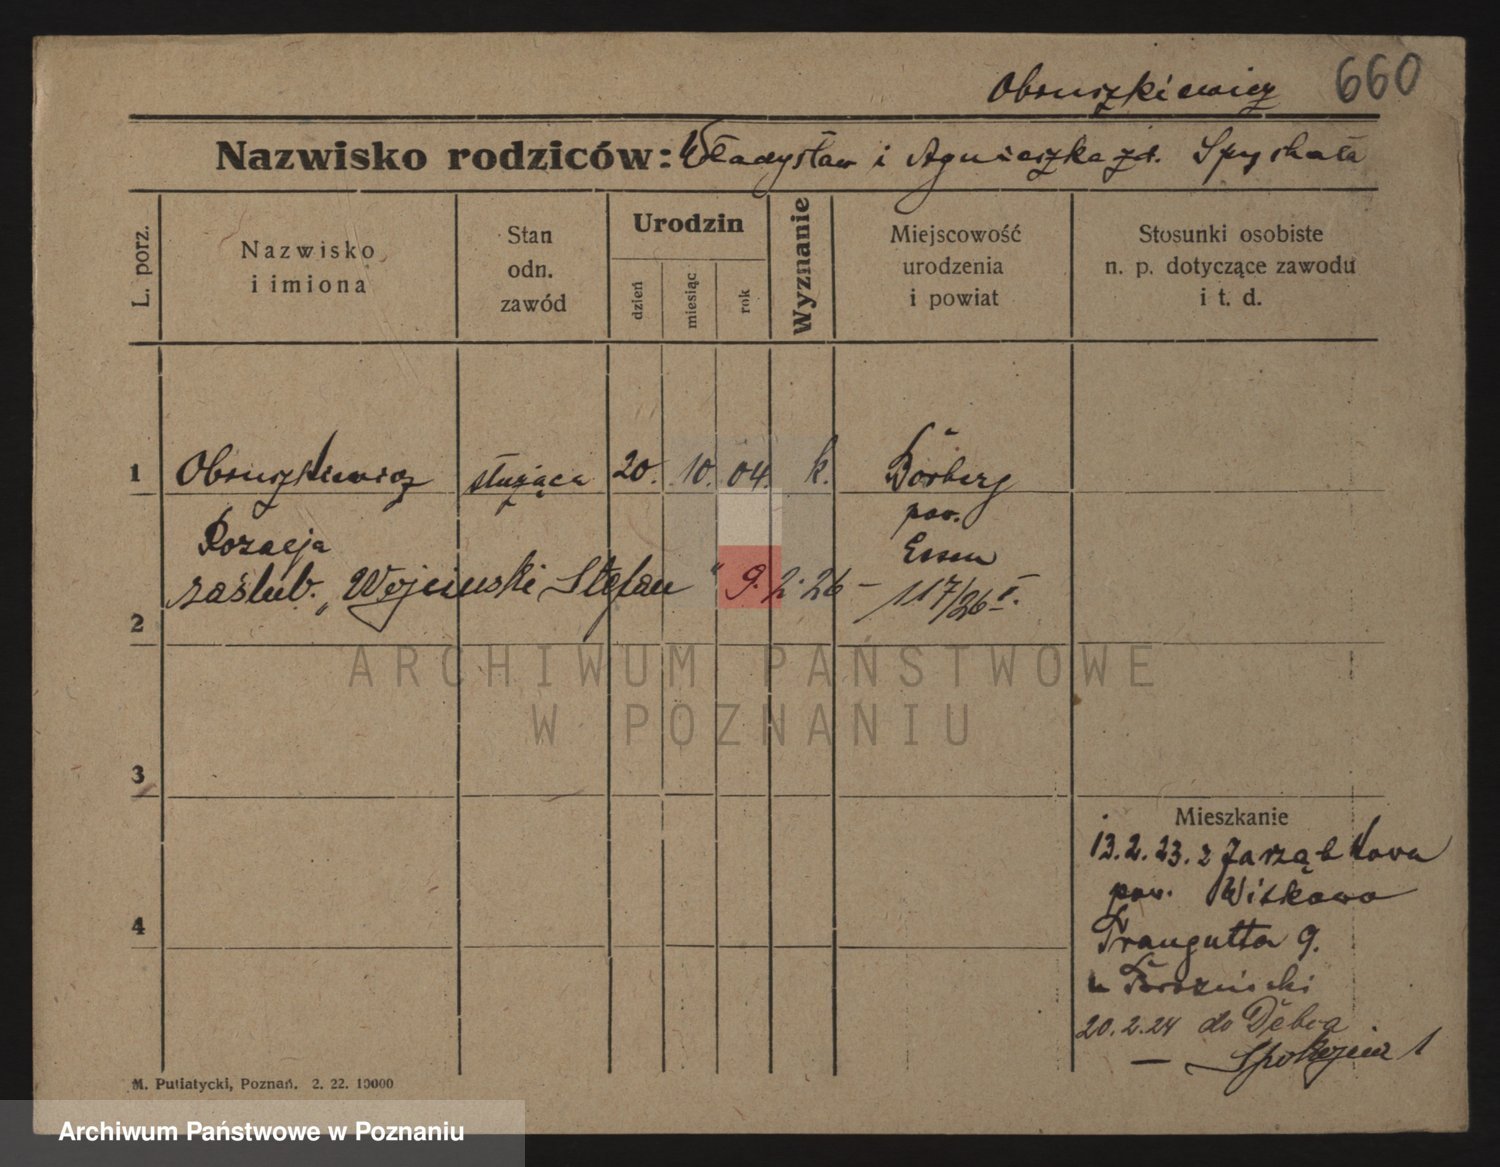 Obruszkiewicz 660
Nazwisko rodziców: Władysław i Agnieszka zd. Spychała
L. porz.
Nazwisko i imiona
Stan odn. zawód
Urodzin
dzień
miesiąc
rok
Wyznanie
Miejscowość urodzenia i powiat
Stosunki osobiste n. p. dotyczące zawodu i t. d.
1 Obruszkiewicz służąca 20. 10. 04. k.
pow.
Rozalja Essen
zaślub. „Wojciński Stefan" 9. 2. 26 — 117/26 I.
2
ARCHIWUM PAŃSTWOWE
W POZNANIU
3
Mieszkanie
13. 2. 23. z Jarząbkowa
pow. Witkowo
4
Traugutta 9.
u
20. 2. 24 do Dębca
— Spokojna 1
M. Putiatycki, Poznań. 2. 22. 10000
Archiwum Państwowe w Poznaniu